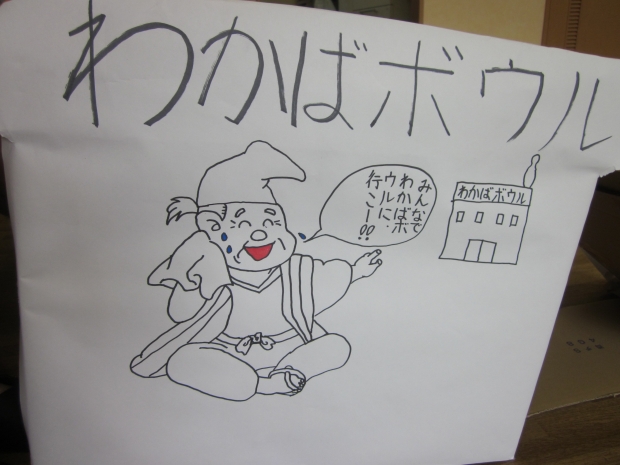 わかばボウル
みんなで
わかばボ
ウルに
行こー!!
わかばボウル